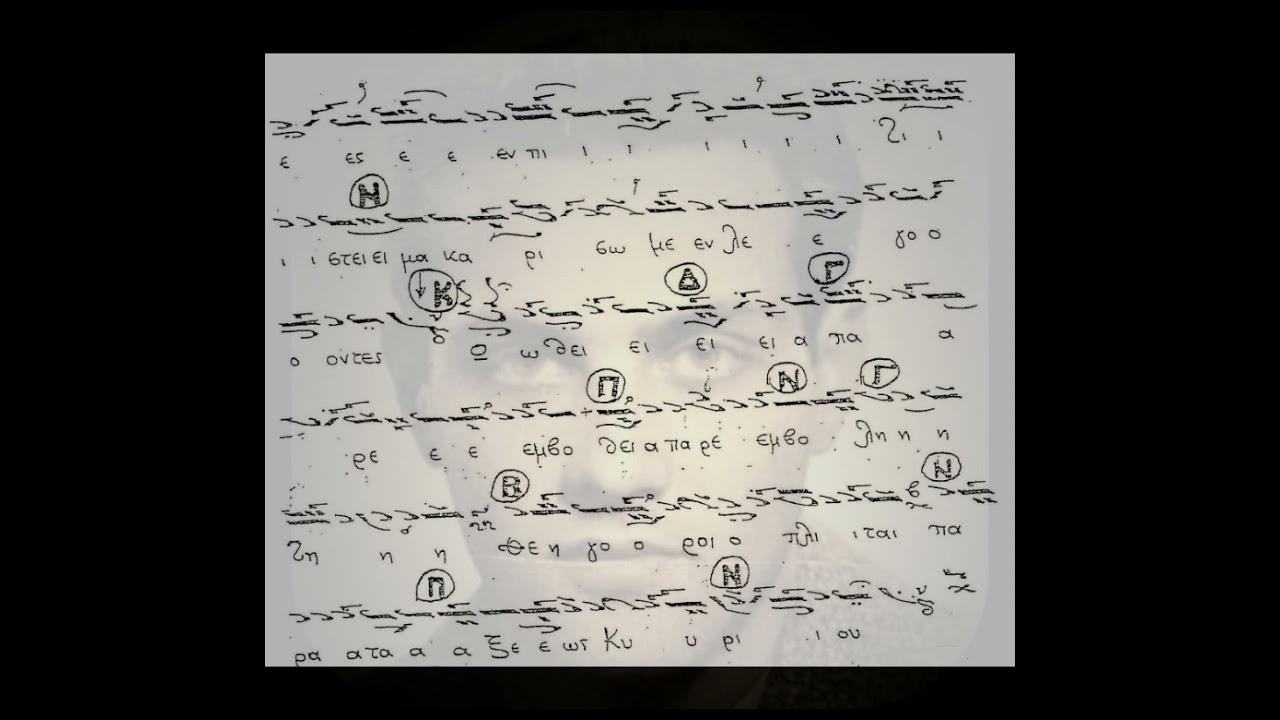 ε ες ε ε εν πι ι ι ι ι ι ι ζι ι
Η
ι ι στει ει μα κα ρι σω με εν λε ε γο ο
Κ Δ Γ
ο οντες ο ω θει ει ει ει α πα α
Π Ν Γ
ρε ε ε εμβο θει α πα ρε εμβο λη η η
Β Ν
ζη η η Θε η γο ο ροι ο πλι ιται πα
Π Ν
ρα ατα α α ξε ε ως Κυ υ ρι ι ου